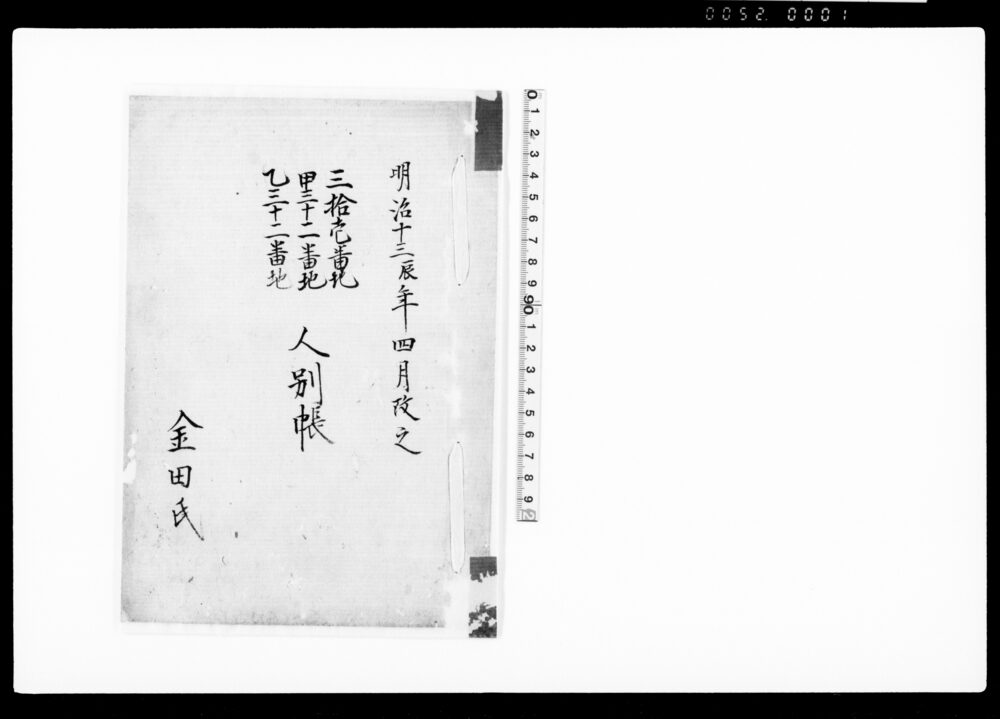 0052. 0001
明治十三辰年四月改之
三拾壱番地
甲三十二番地
乙三十二番地
人別帳
金田氏
0 1 2 3 4 5 6 7 8 9 90 1 2 3 4 5 6 7 8 9 2